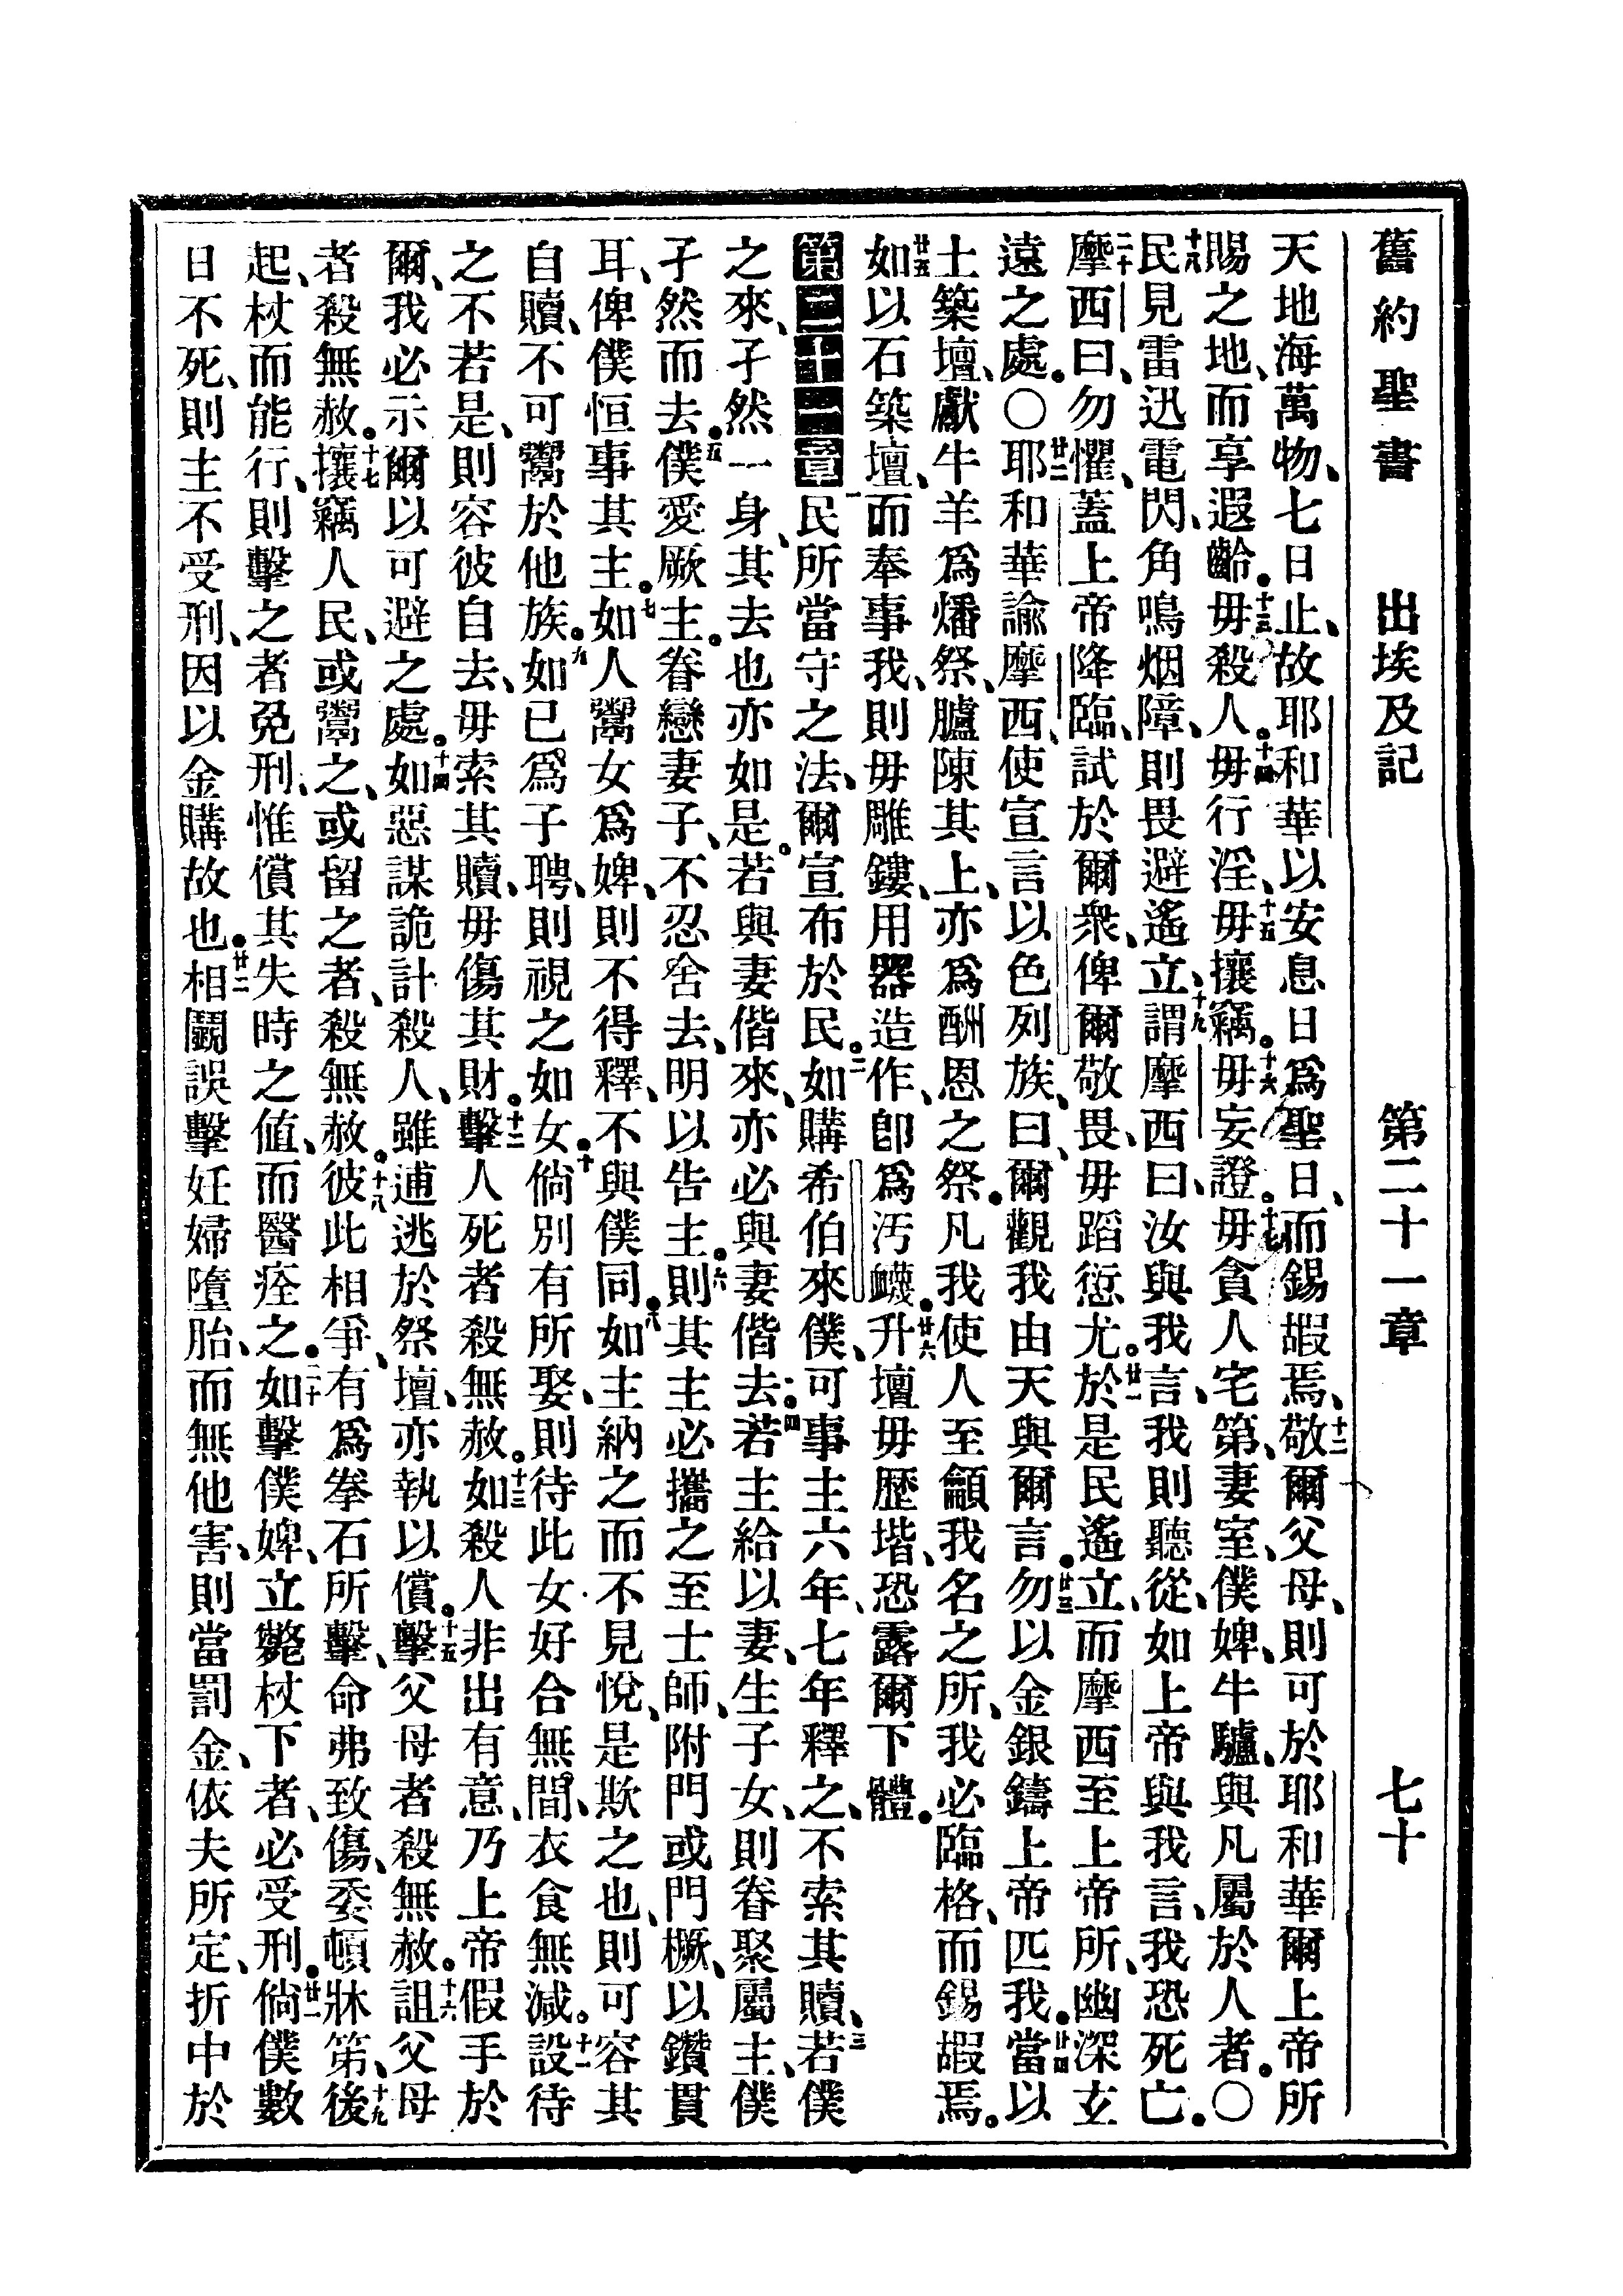 舊約聖書 出埃及記 第二十一章 七十
天地海萬物、七日止、故耶和華以安息日爲聖日、而錫嘏焉、十二敬爾父母、則可於耶和華爾上帝所
賜之地、而享遐齡。十三毋殺人。十四毋行淫、十五毋攘竊。十六毋妄證。十七毋貪人宅第、妻室、僕婢、牛驢、與凡屬於人者。〇
十八民見雷迅電閃、角鳴烟障、則畏避遙立、十九謂摩西曰、汝與我言、我則聽從、如上帝與我言、我恐死亡。
二十摩西曰、勿懼、蓋上帝降臨、試於爾衆、俾爾敬畏、毋蹈愆尤。廿一於是民遙立、而摩西至上帝所、幽深玄
遠之處。〇廿二耶和華諭摩西、使宣言以色列族、曰、爾觀我由天與爾言。廿三勿以金銀鑄上帝匹我。廿四當以
土築壇、獻牛羊爲燔祭、臚陳其上、亦爲酬恩之祭。凡我使人至龥我名之所、我必臨格、而錫嘏焉。
廿五如以石築壇、而奉事我、則毋雕鏤、用器造作、卽爲汚衊。廿六升壇毋歷堦、恐露爾下體。
第二十一章 一民所當守之法、爾宣布於民。二如購希伯來僕、可事主六年、七年釋之、不索其贖、三若僕
之來、孑然一身、其去也亦如是。若與妻偕來、亦必與妻偕去。四若主給以妻、生子女、則眷聚屬主、僕
孑然而去。五僕愛厥主。眷戀妻子、不忍舍去、明以告主。六則其主必攜之至士師、附門或門橛、以鑽貫
耳、俾僕恒事其主。七如人鬻女爲婢、則不得釋、不與僕同。八如主納之而不見悅、是欺之也、則可容其
自贖、不可鬻於他族。九如已爲子聘、則視之如女。十倘別有所娶、則待此女好合無間、衣食無減。十一設待
之不若是、則容彼自去、毋索其贖、毋傷其財。十二擊人死者殺無赦。十三如殺人非出有意、乃上帝假手於
爾、我必示爾以可避之處。十四如惡謀詭計殺人、雖逋逃於祭壇、亦執以償。十五擊父母者殺無赦。十六詛父母
者殺無赦。十七攘竊人民、或鬻之、或留之者、殺無赦。十八彼此相爭、有爲拳石所擊、命弗致傷、委頓牀笫、十九後
起、杖而能行、則擊之者免刑、惟償其失時之値、而醫痊之。二十如擊僕婢、立斃杖下者、必受刑。廿一倘僕數
日不死、則主不受刑、因以金購故也。廿二相鬭誤擊妊婦墮胎、而無他害、則當罰金、依夫所定、折中於